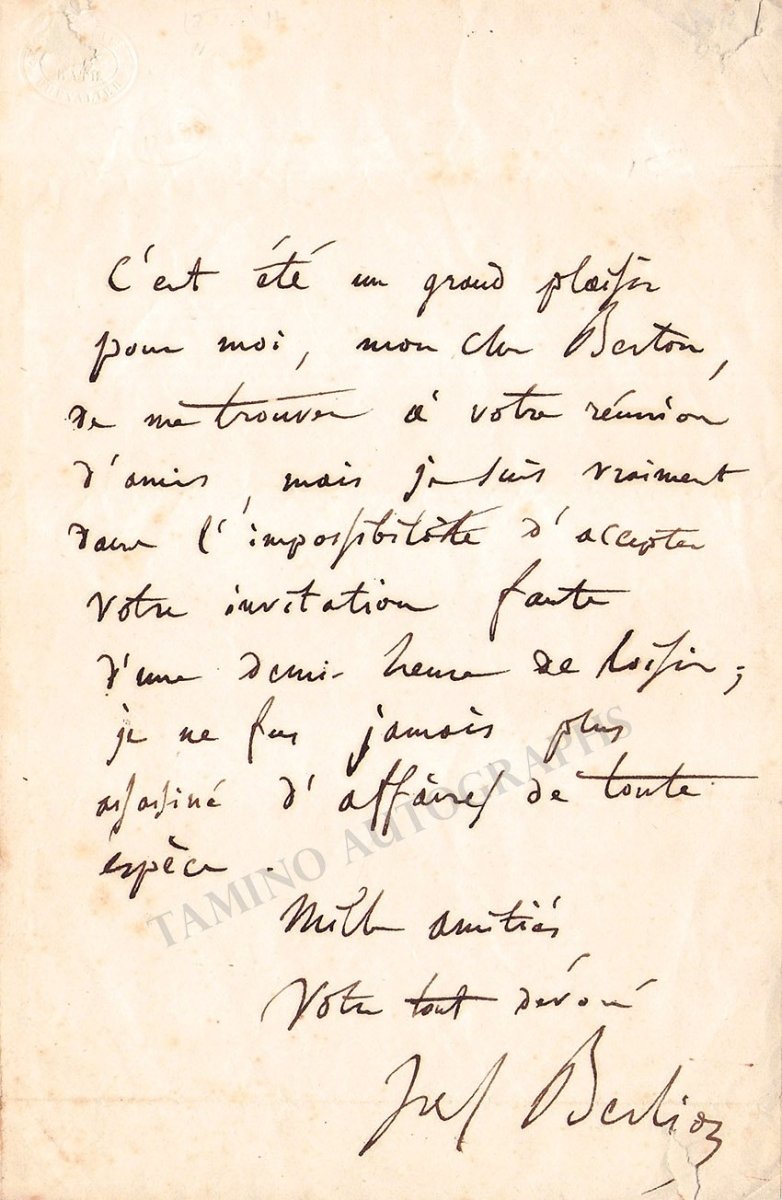 BATH
C'est été un grand plaisir
pour moi, mon cher Berton,
de me trouver à votre réunion
d'amis, mais je suis vraiment
dans l'impossibilité d'accepter
votre invitation faute
d'une demi-heure de loisir;
je ne fus jamais plus
assassiné d'affaires de toute
espèce.
Mille amitiés
Votre tout dévoué
Berlioz
TAMINO AUTOGRAPHS